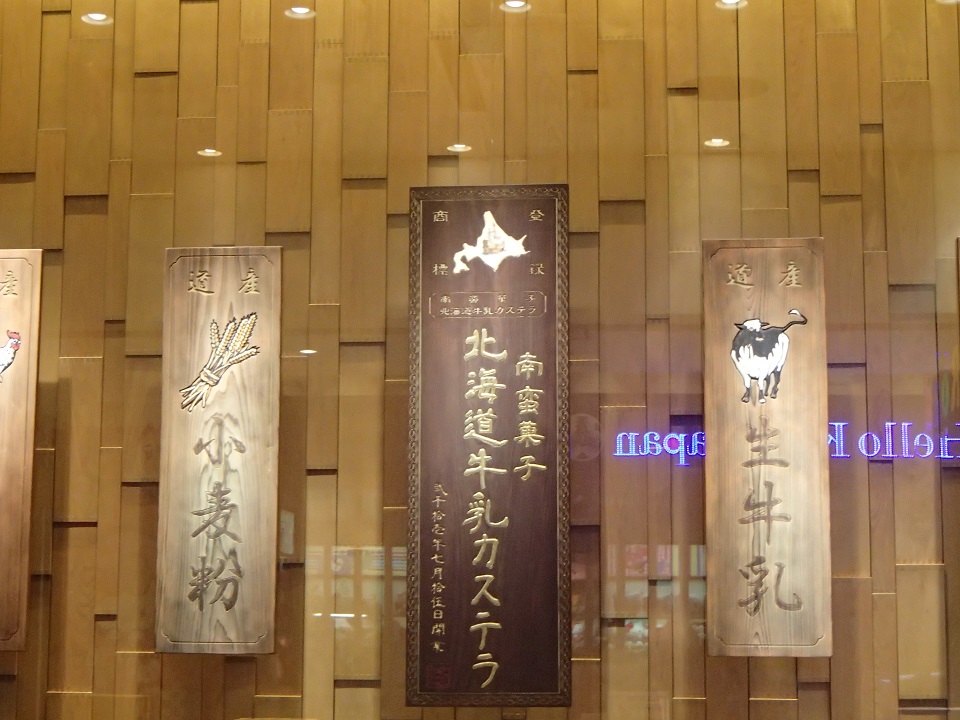 産
道産
小麦粉
商登
標録
南蛮菓子
北海道牛乳カステラ
南蛮菓子
北海道牛乳カステラ
弐千拾壱年七月拾伍日開業
道産
生牛乳
Hello
apan